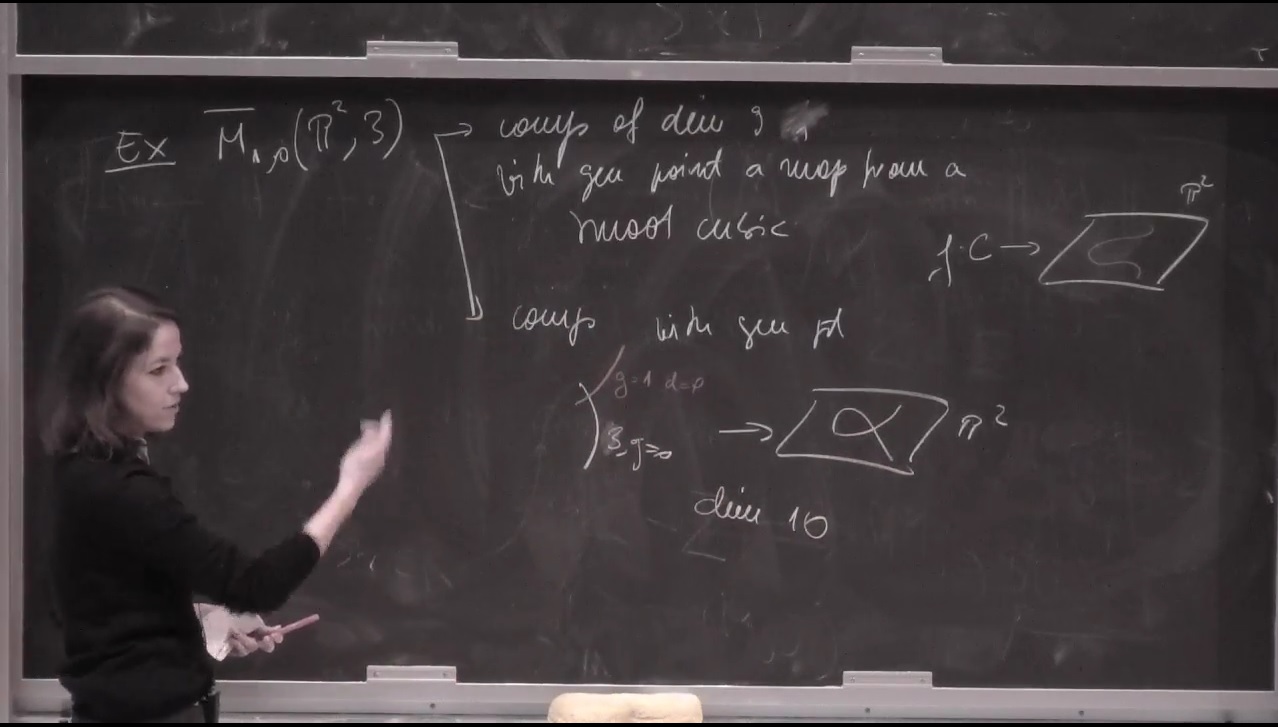 Ex M̅₁,₀(ℙ², 3) → comp of dim 9
with gen point a map from a
smoot cubic
f: C → ℙ²
comp with gen pt
g=1 d=0
3, g=0 → ℙ²
dim 10